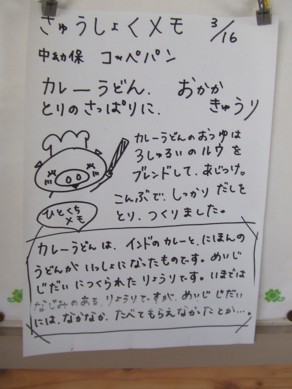 きゅうしょくメモ 3/16
中幼保 コッペパン
カレーうどん、 おかか
とりのさっぱりに、 きゅうり
カレーうどんのおつゆは
3しゅるいのルウを
ブレンドして、あじつけ。
こんぶで、しっかりだしを
とり、つくりました。
ひとくち
メモ
カレーうどんは、インドのカレーと、にほんの
うどんが いっしょになったものです。めいじ
じだいにつくられたりょうりです。いまでは
なじみのある、りょうりですが、めいじじだい
には、なかなか、たべてもらえなかったとか…。